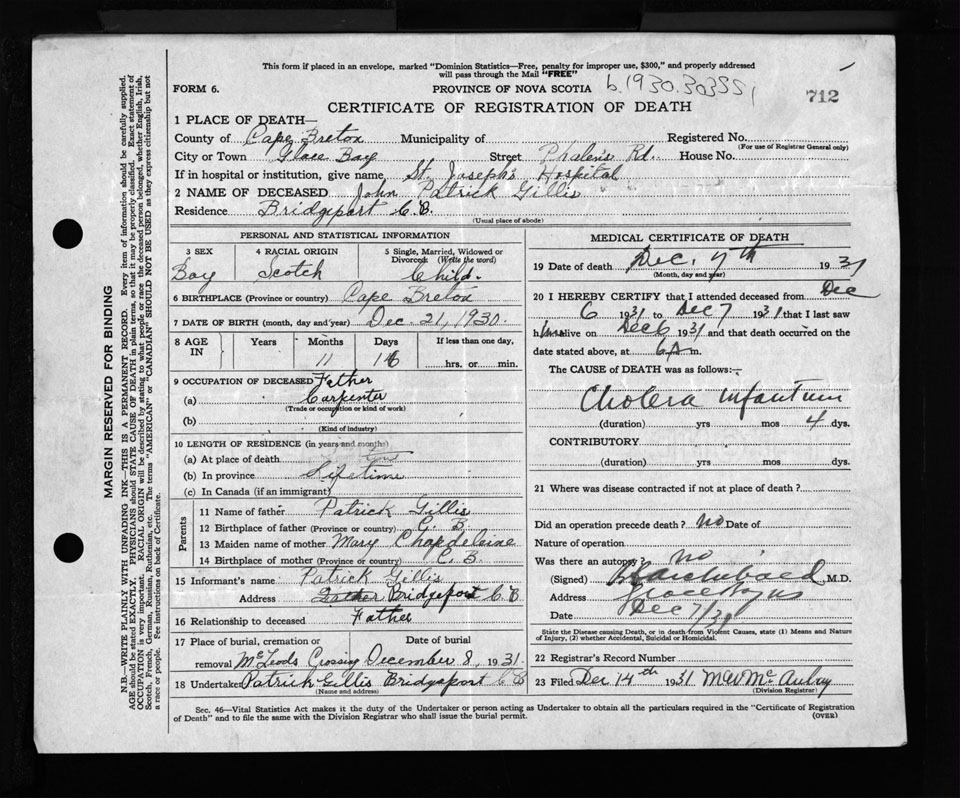 This form if placed in an envelope, marked "Dominion Statistics—Free, penalty for improper use, $300," and properly addressed
will pass through the Mail "FREE"
FORM 6. PROVINCE OF NOVA SCOTIA b.1930.303551
712
CERTIFICATE OF REGISTRATION OF DEATH
1 PLACE OF DEATH—
County of Cape Breton Municipality of Registered No.
(For use of Registrar General only)
City or Town Glace Bay Street Phalen's Rd. House No.
If in hospital or institution, give name St. Joseph's Hospital
2 NAME OF DECEASED John Patrick Gillis
Residence Bridgeport C.B.
(Usual place of abode)
PERSONAL AND STATISTICAL INFORMATION
3 SEX 4 RACIAL ORIGIN 5 Single, Married, Widowed or
Divorced (Write the word)
Boy Scotch Child.
6 BIRTHPLACE (Province or country) Cape Breton
7 DATE OF BIRTH (month, day and year) Dec. 21, 1930.
8 AGE IN Years Months Days If less than one day,
11 16 hrs. or min.
9 OCCUPATION OF DECEASED Father
(a) Carpenter
(Trade or occupation or kind of work)
(b)
(Kind of industry)
10 LENGTH OF RESIDENCE (in years and months)
(a) At place of death
(b) In province Lifetime
(c) In Canada (if an immigrant)
Parents
11 Name of father Patrick Gillis
12 Birthplace of father (Province or country) C. B.
13 Maiden name of mother Mary Chapdelaine
14 Birthplace of mother (Province or country) C. B.
15 Informant's name Patrick Gillis
Address Father Bridgeport C.B
16 Relationship to deceased Father
17 Place of burial, cremation or Date of burial
removal McLeods Crossing December 8, 1931.
18 Undertaker Patrick Gillis Bridgeport C B
(Name and address)
MEDICAL CERTIFICATE OF DEATH
19 Date of death Dec. 7th 1931
(Month, day and year)
20 I HEREBY CERTIFY that I attended deceased from Dec
6 1931 to Dec 7 1931 that I last saw
him alive on Dec 6 1931 and that death occurred on the
date stated above, at 6 A m.
The CAUSE of DEATH was as follows:—
Cholera Infantum
(duration) yrs mos 4 dys.
CONTRIBUTORY
(duration) yrs. mos. dys.
21 Where was disease contracted if not at place of death?
Did an operation precede death? no Date of
Nature of operation
Was there an autopsy? no
(Signed) Archibald M.D.
Address Glace Bay NS
Date Dec 7/31
State the Disease causing Death, or in death from Violent Causes, state (1) Means and Nature
of Injury, (2) whether Accidental, Suicidal or Homicidal.
22 Registrar's Record Number
23 Filed Dec 14th 1931 M W McAulay
(Division Registrar)
Sec. 46—Vital Statistics Act makes it the duty of the Undertaker or person acting as Undertaker to obtain all the particulars required in the "Certificate of Registration
of Death" and to file the same with the Division Registrar who shall issue the burial permit.
(OVER)
MARGIN RESERVED FOR BINDING
N.B.—WRITE PLAINLY WITH UNFADING INK—THIS IS A PERMANENT RECORD. Every item of information should be carefully supplied.
AGE should be stated EXACTLY. PHYSICIANS should STATE CAUSE OF DEATH in plain terms, so that it may be properly classified. Exact statement of
OCCUPATION is very important. RACIAL ORIGIN will be described by stating to what people or race the deceased person belonged, whether English, Irish,
Scotch, French, German, Russian, Ruthenian, etc. The terms "AMERICAN" or "CANADIAN" SHOULD NOT BE USED as they express citizenship but not
a race or people. See instructions on back of Certificate.